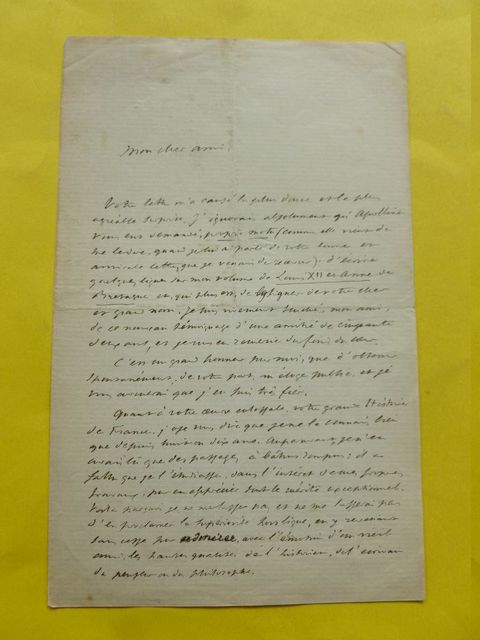 Mon cher ami,
Votre lettre m'a causé la plus douce et la plus
agréable surprise. J'ignorais absolument qu'Apolline
vous eut demandé, proprio motu (comme elle vient de
me le dire, quand je lui ai parlé de votre bonne et
amicale lettre, que je venais de recevoir) d'écrire
quelques lignes sur mon volume de Louis XII et Anne de
Bretagne et, qui plus est, de les signer de votre cher
et grand nom. Je suis vivement touché, mon ami,
de ce nouveau témoignage d'une amitié de cinquante
deux ans, et je vous en remercie du fond du cœur.
C'est un grand honneur pour moi, que d'obtenir
spontanément, de votre part, un éloge public, et je
vous avouerai que j'en suis très fier.
Quant à votre œuvre colossale, votre grande Histoire
de France, j'ose vous dire que je ne la connais bien
que depuis huit ou dix ans. Auparavant je n'en
avais lu que des passages, à bâtons rompus; il a
fallu que je l'étudiasse, dans l'intérêt de mes propres
travaux, pour en apprécier tout le mérite exceptionnel.
Voilà pourquoi je ne me lasse pas, et ne me lasserai pas
d'en proclamer la supériorité hors ligne, en y revenant
sans cesse pour admirer, avec l'émotion d'un vieil
ami, les hautes qualités de l'historien, de l'écrivain
du penseur ou du philosophe.